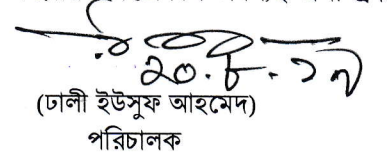 ২০.৮.১৭
(ঢালী ইউসুফ আহমেদ)
পরিচালক